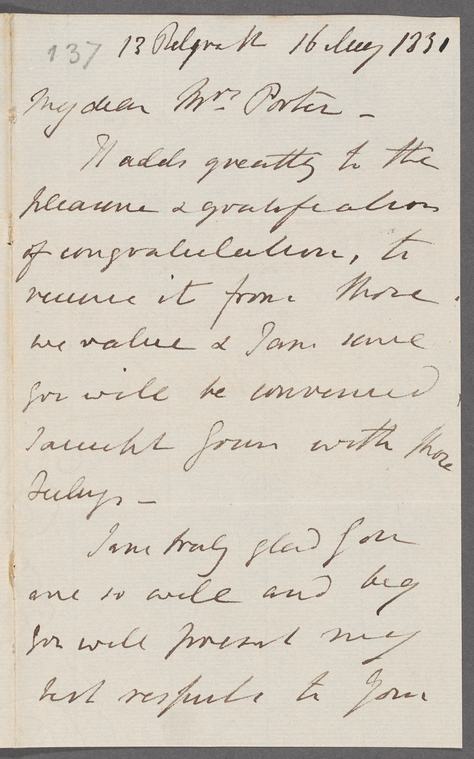 137 13 Belgrave St 16 May 1831
My dear Mrs. Porter -
It adds greatly to the
pleasure & gratification
of congratulation, to
receive it from those
we value & I am sure
you will be convinced
I accept yours with those
feelings -
I am truly glad you
are so well and beg
you will present my
best respects to your